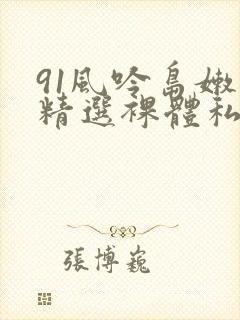 91風吟鳥嫩
精選裸體私
張博巍